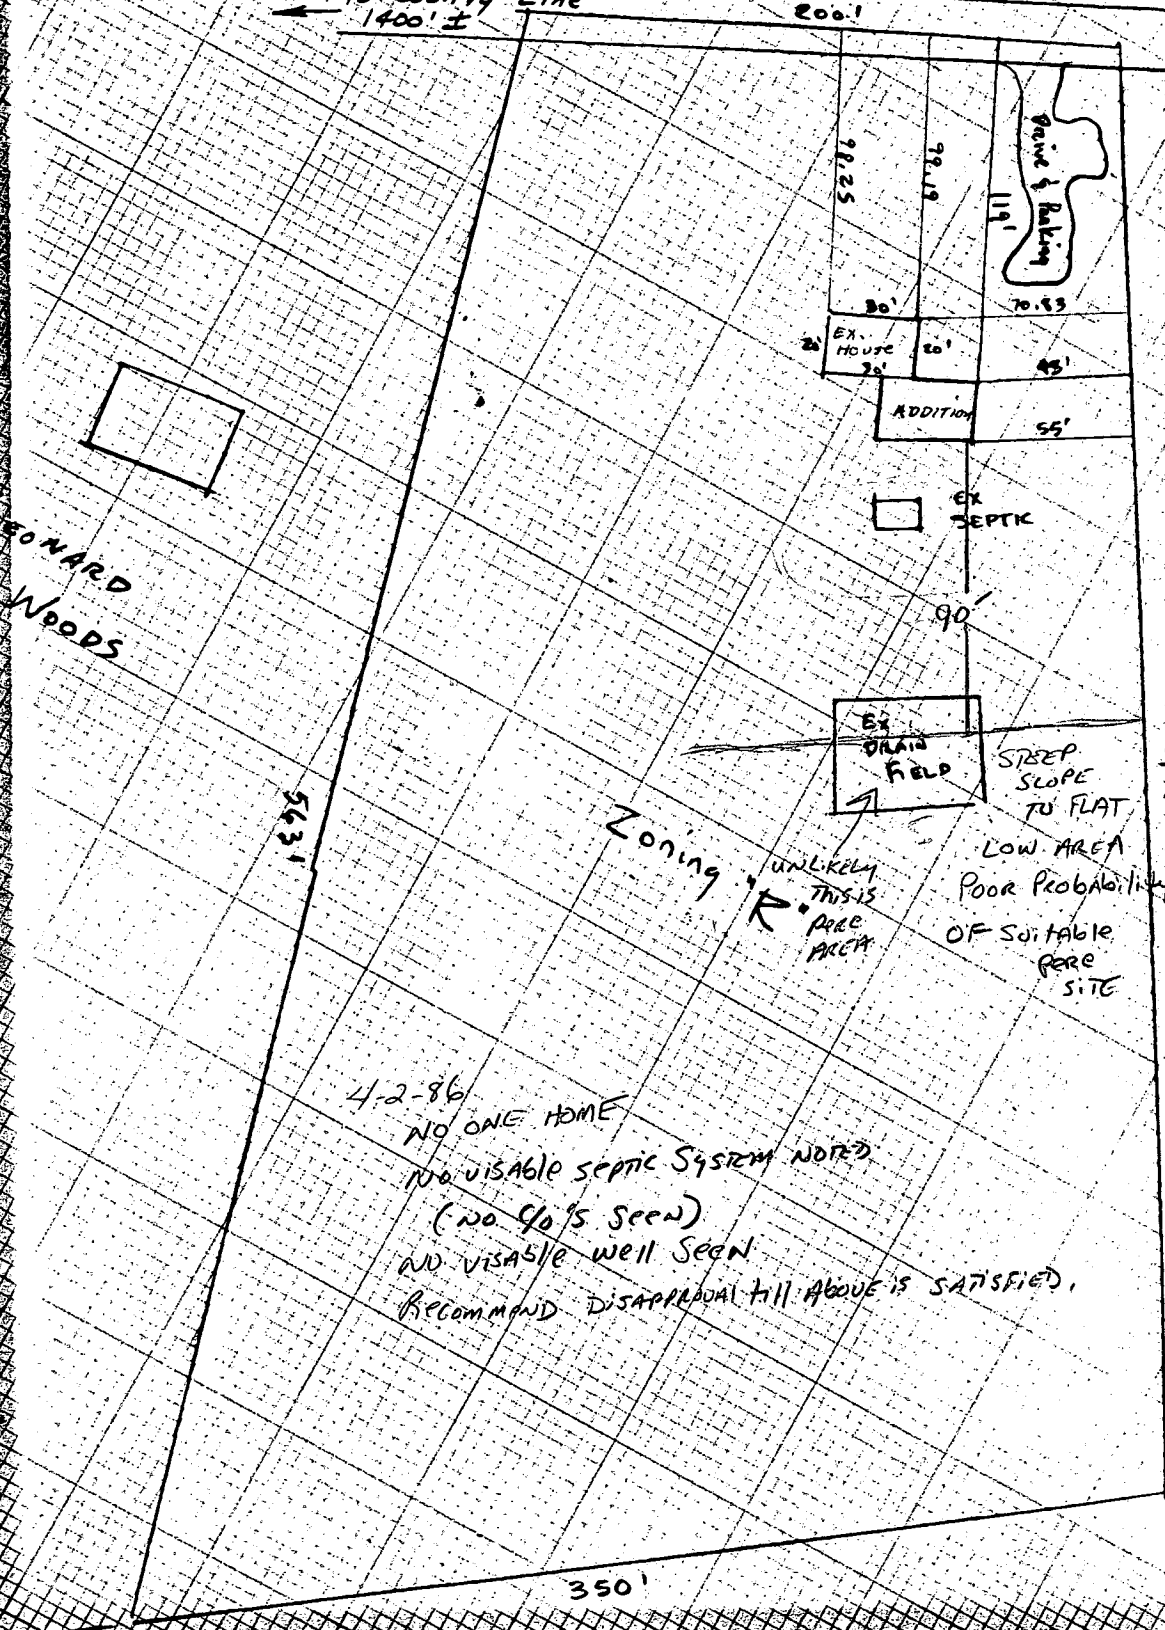 To County Line
1400' ±
200.'
98.25
99.19
119'
Drive & Parking
30'
70.83
20'
EX.
HOUSE
20'
45'
30'
ADDITION
55'
EX
SEPTIC
90'
EONARD
WOODS
563'
EX
DRAIN
FIELD
STEEP
SLOPE
TO FLAT
LOW AREA
POOR PRObAbility
OF SUITAble
PERC
SITE
Zoning "R"
UNLIKELY
THIS IS
PERC
AREA
4-2-86
NO ONE HOME
NO VISABLE SEPTIC SYSTEM NOTED
(NO C/O'S SEEN)
NO VISABLE WELL SEEN
RECOMMEND DISAPPROVAL till ABOVE IS SATISFIED.
350'